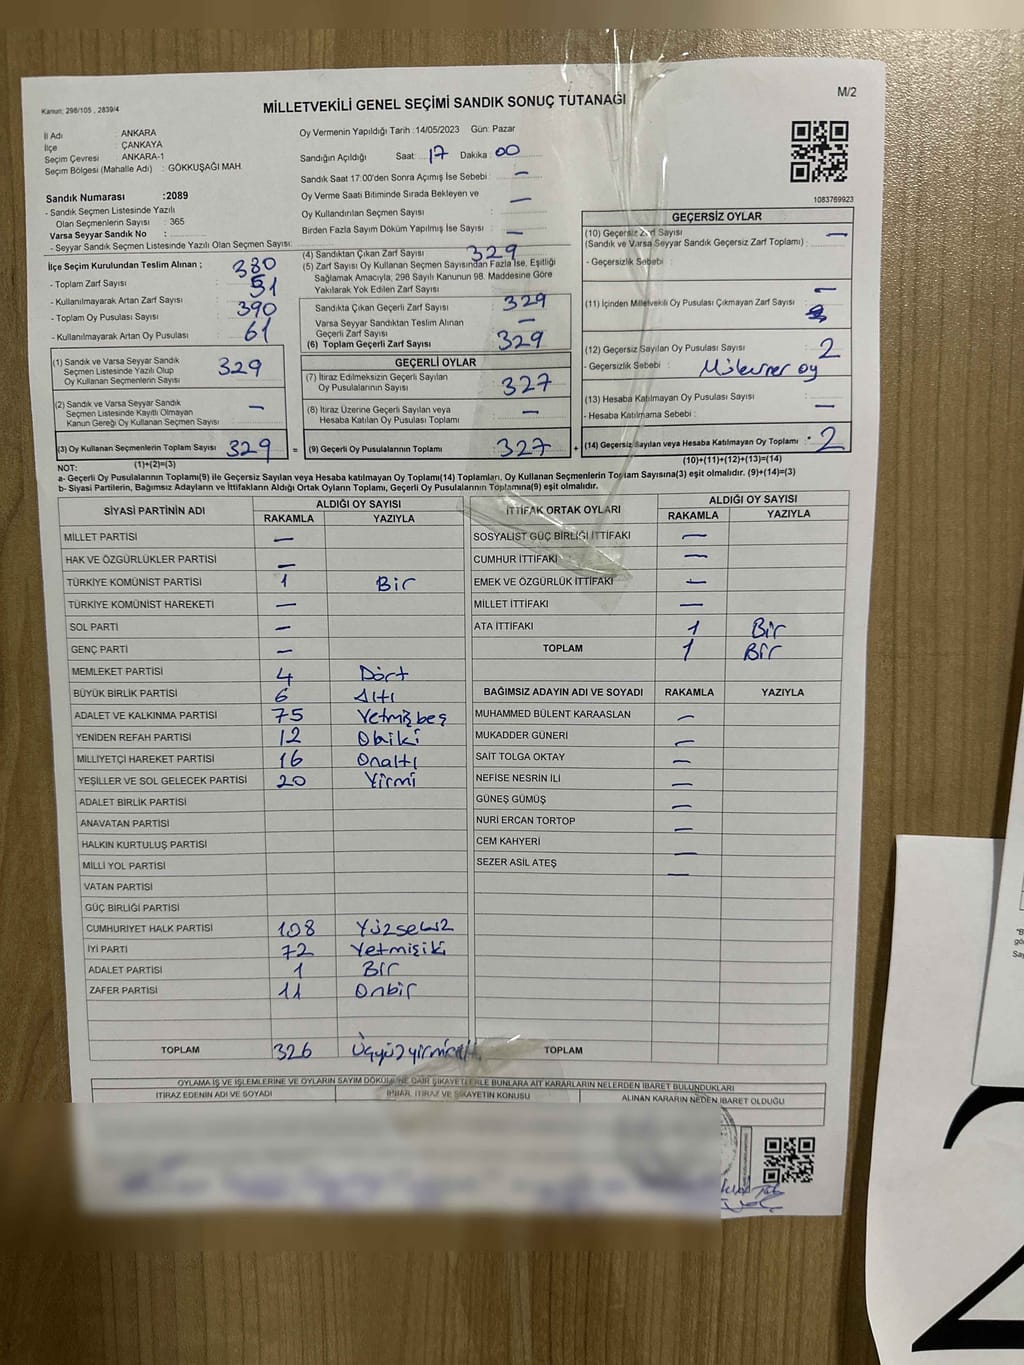 Kanun: 298/105 , 2839/4
MİLLETVEKİLİ GENEL SEÇİMİ SANDIK SONUÇ TUTANAĞI
M/2
İl Adı : ANKARA
İlçe : ÇANKAYA
Seçim Çevresi : ANKARA-1
Seçim Bölgesi (Mahalle Adı) : GÖKKUŞAĞI MAH.
Sandık Numarası :2089
- Sandık Seçmen Listesinde Yazılı
Olan Seçmenlerin Sayısı : 365
Varsa Seyyar Sandık No :
- Seyyar Sandık Seçmen Listesinde Yazılı Olan Seçmen Sayısı:
Oy Vermenin Yapıldığı Tarih :14/05/2023 Gün: Pazar
Sandığın Açıldığı Saat: 17 Dakika 00
Sandık Saat 17:00'den Sonra Açılmış İse Sebebi : —
Oy Verme Saati Bitiminde Sırada Bekleyen ve
Oy Kullandırılan Seçmen Sayısı : —
Birden Fazla Sayım Döküm Yapılmış İse Sayısı : —
1083769923
İlçe Seçim Kurulundan Teslim Alınan ;
- Toplam Zarf Sayısı : 380
- Kullanılmayarak Artan Zarf Sayısı : 51
- Toplam Oy Pusulası Sayısı : 390
- Kullanılmayarak Artan Oy Pusulası : 61
(1) Sandık ve Varsa Seyyar Sandık
Seçmen Listesinde Yazılı Olup
Oy Kullanan Seçmenlerin Sayısı : 329
(2) Sandık ve Varsa Seyyar Sandık
Seçmen Listesinde Kayıtlı Olmayan
Kanun Gereği Oy Kullanan Seçmen Sayısı : —
(3) Oy Kullanan Seçmenlerin Toplam Sayısı : 329 =
(1)+(2)=(3)
(4) Sandıktan Çıkan Zarf Sayısı : 329
(5) Zarf Sayısı Oy Kullanan Seçmen Sayısından Fazla İse, Eşitliği
Sağlamak Amacıyla; 298 Sayılı Kanunun 98. Maddesine Göre
Yakılarak Yok Edilen Zarf Sayısı :
Sandıkta Çıkan Geçerli Zarf Sayısı : 329
Varsa Seyyar Sandıktan Teslim Alınan
Geçerli Zarf Sayısı : —
(6) Toplam Geçerli Zarf Sayısı : 329
GEÇERLİ OYLAR
(7) İtiraz Edilmeksizin Geçerli Sayılan
Oy Pusulalarının Sayısı : 327
(8) İtiraz Üzerine Geçerli Sayılan veya
Hesaba Katılan Oy Pusulası Sayısı : —
(9) Geçerli Oy Pusulalarının Toplamı : 327 +
GEÇERSİZ OYLAR
(10) Geçersiz Zarf Sayısı : —
(Sandık ve Varsa Seyyar Sandık Geçersiz Zarf Toplamı) :
- Geçersizlik Sebebi :
(11) İçinden Milletvekili Oy Pusulası Çıkmayan Zarf Sayısı : —
(12) Geçersiz Sayılan Oy Pusulası Sayısı : 2
- Geçersizlik Sebebi : oy
(13) Hesaba Katılmayan Oy Pusulası Sayısı : —
- Hesaba Katılmama Sebebi :
(14) Geçersiz Sayılan veya Hesaba Katılmayan Oy Toplamı : 2
(10)+(11)+(12)+(13)=(14)
NOT:
a- Geçerli Oy Pusulalarının Toplamı(9) ile Geçersiz Sayılan veya Hesaba katılmayan Oy Toplamı(14) Toplamları, Oy Kullanan Seçmenlerin Toplam Sayısına(3) eşit olmalıdır. (9)+(14)=(3)
b- Siyasi Partilerin, Bağımsız Adayların ve İttifakların Aldığı Ortak Oyların Toplamı, Geçerli Oy Pusulalarının Toplamına(9) eşit olmalıdır.
SİYASİ PARTİNİN ADI ALDIĞI OY SAYISI
RAKAMLA YAZIYLA
MİLLET PARTİSİ —
HAK VE ÖZGÜRLÜKLER PARTİSİ —
TÜRKİYE KOMÜNİST PARTİSİ 1 Bir
TÜRKİYE KOMÜNİST HAREKETİ —
SOL PARTİ —
GENÇ PARTİ —
MEMLEKET PARTİSİ 4 Dört
BÜYÜK BİRLİK PARTİSİ 6 Altı
ADALET VE KALKINMA PARTİSİ 75 Yetmişbeş
YENİDEN REFAH PARTİSİ 12 Oniki
MİLLİYETÇİ HAREKET PARTİSİ 16 Onaltı
YEŞİLLER VE SOL GELECEK PARTİSİ 20 Yirmi
ADALET BİRLİK PARTİSİ
ANAVATAN PARTİSİ
HALKIN KURTULUŞ PARTİSİ
MİLLİ YOL PARTİSİ
VATAN PARTİSİ
GÜÇ BİRLİĞİ PARTİSİ
CUMHURİYET HALK PARTİSİ 108 Yüzsekiz
İYİ PARTİ 72 Yetmişiki
ADALET PARTİSİ 1 Bir
ZAFER PARTİSİ 11 Onbir
TOPLAM 326 Üçyüzyirmialtı
İTTİFAK ORTAK OYLARI ALDIĞI OY SAYISI
RAKAMLA YAZIYLA
SOSYALİST GÜÇ BİRLİĞİ İTTİFAKI —
CUMHUR İTTİFAKI —
EMEK VE ÖZGÜRLÜK İTTİFAKI —
MİLLET İTTİFAKI —
ATA İTTİFAKI 1 Bir
TOPLAM 1 Bir
BAĞIMSIZ ADAYIN ADI VE SOYADI RAKAMLA YAZIYLA
MUHAMMED BÜLENT KARAASLAN —
MUKADDER GÜNERİ —
SAİT TOLGA OKTAY —
NEFİSE NESRİN İLİ —
GÜNEŞ GÜMÜŞ —
NURİ ERCAN TORTOP —
CEM KAHYERİ —
SEZER ASİL ATEŞ —
TOPLAM
OYLAMA İŞ VE İŞLEMLERİNE VE OYLARIN SAYIM DÖKÜMÜNE DAİR ŞİKAYETLERLE BUNLARA AİT KARARLARIN NELERDEN İBARET BULUNDUKLARI
İTİRAZ EDENİN ADI VE SOYADI İHBAR, İTİRAZ VE ŞİKAYETİN KONUSU ALINAN KARARIN NEDEN İBARET OLDUĞU
2